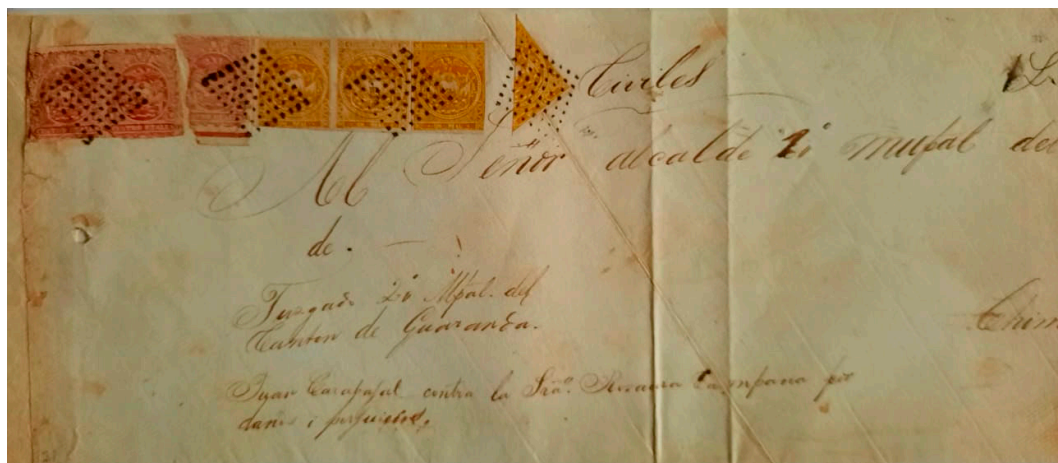 Civiles
Al Señor alcalde 2º mupal del
de.
Juzgado 2º Mpal. del
Canton de Guaranda.
Chim
Juan Carabajal contra la Sra. Rosaura Campana por
daños i perjuicios,